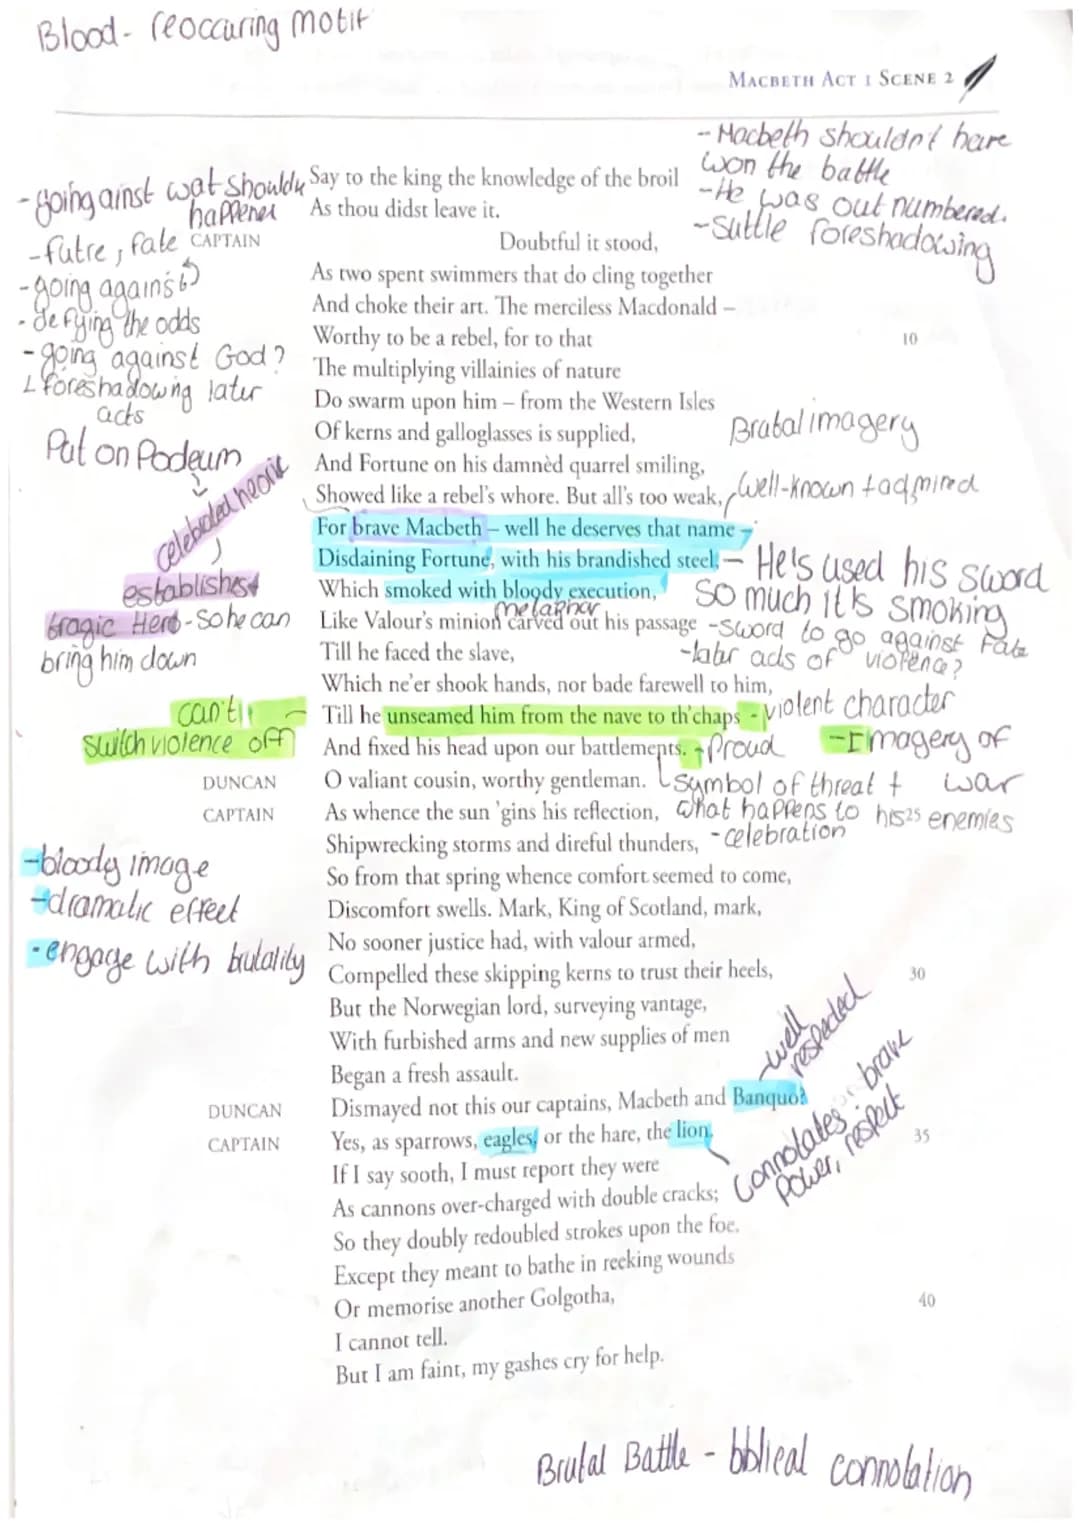 Blood- reoccuring motif
MACBETH ACT 1 SCENE 2
- Macbeth shouldn't have
won the battle
- He was out numbered.
- Suttle foreshadowing
- going ainst wat shouldv
happened
- futre, fate
- going against
- defying the odds
- going against God?
↳ foreshadowing later
acts
Put on Podeum
celebrated heoric
establishes
tragic Hero - So he can
bring him down
Say to the king the knowledge of the broil
As thou didst leave it.
CAPTAIN Doubtful it stood,
As two spent swimmers that do cling together
And choke their art. The merciless Macdonald –
Worthy to be a rebel, for to that 10
The multiplying villainies of nature
Do swarm upon him – from the Western Isles
Of kerns and galloglasses is supplied,
Brutal imagery
And Fortune on his damnèd quarrel smiling,
Showed like a rebel's whore. But all's too weak,
well-known + admired
For brave Macbeth – well he deserves that name –
Disdaining Fortune, with his brandished steel,
- He's used his sword
so much it's smoking
Which smoked with bloody execution,
metaphor
Like Valour's minion carved out his passage
- sword to go against Fate
- later acts of violence?
Till he faced the slave,
Which ne'er shook hands, nor bade farewell to him,
can't
switch violence off
Till he unseamed him from the nave to th'chaps
- violent character
And fixed his head upon our battlements.
- Proud
- Imagery of
war
symbol of threat +
what happens to his enemies
- celebration
DUNCAN O valiant cousin, worthy gentleman.
CAPTAIN As whence the sun 'gins his reflection, 25
Shipwrecking storms and direful thunders,
So from that spring whence comfort seemed to come,
Discomfort swells. Mark, King of Scotland, mark,
No sooner justice had, with valour armed,
Compelled these skipping kerns to trust their heels, 30
- bloody image
- dramatic effect
- engage with brutality
But the Norwegian lord, surveying vantage,
With furbished arms and new supplies of men
Began a fresh assault.
DUNCAN Dismayed not this our captains, Macbeth and Banquo?
- well
respected
CAPTAIN Yes, as sparrows, eagles, or the hare, the lion. 35
connotates: brave
Power, respect
If I say sooth, I must report they were
As cannons over-charged with double cracks;
So they doubly redoubled strokes upon the foe.
Except they meant to bathe in reeking wounds
Or memorise another Golgotha, 40
I cannot tell.
But I am faint, my gashes cry for help.
Brutal Battle - biblical connotation